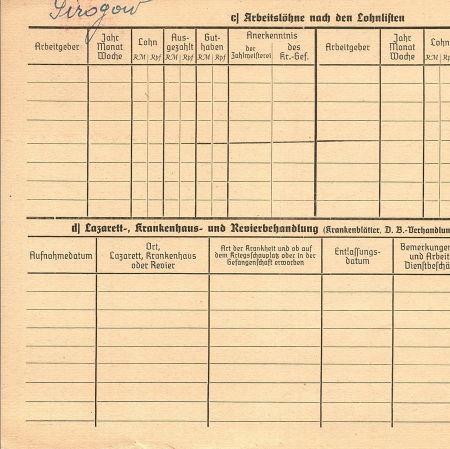 Sirogow
c) Arbeitslöhne nach den Lohnlisten
Arbeitgeber Jahr Monat Woche Lohn RM Rpf Aus- gezahlt RM Rpf Gut- haben RM Rpf Anerkenntnis der Zahlmeisterei des Kr.-Gef. Arbeitgeber Jahr Monat Woche Lohn RM Rpf
d) Lazarett-, Krankenhaus- und Revierbehandlung (Krankenblätter, D. B.-Verhandlun
Aufnahmedatum Ort, Lazarett, Krankenhaus oder Revier Art der Krankheit und ob auf dem Kriegsschauplatz oder in der Gefangenschaft erworben Entlassungs- datum Bemerkungen und Arbeit Dienstbeschä